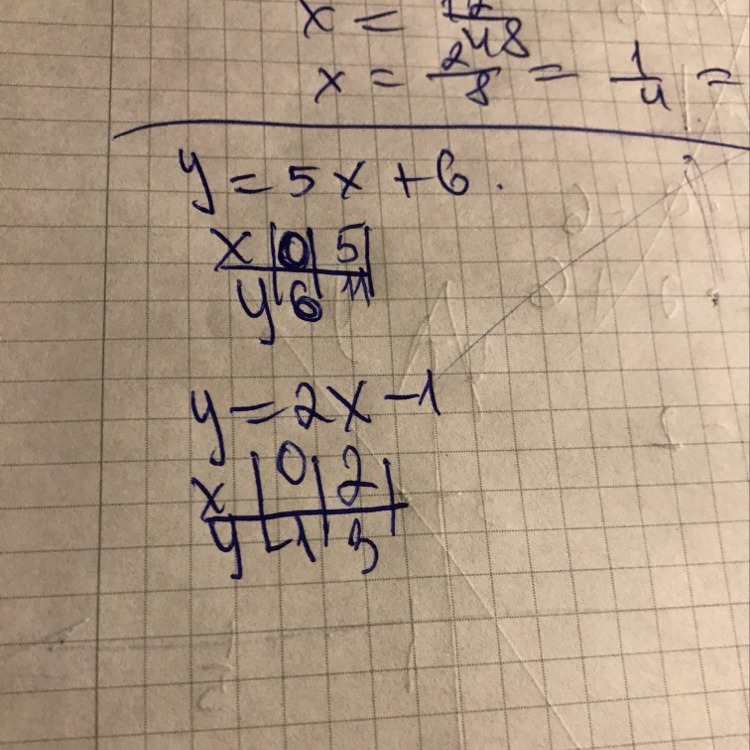 x = 12/48
x = 2/8 = 1/4 =
y = 5x + 6.
x | 0 | 5 |
y | 6 | 11 |
y = 2x - 1
x | 0 | 2 |
y | -1 | 3